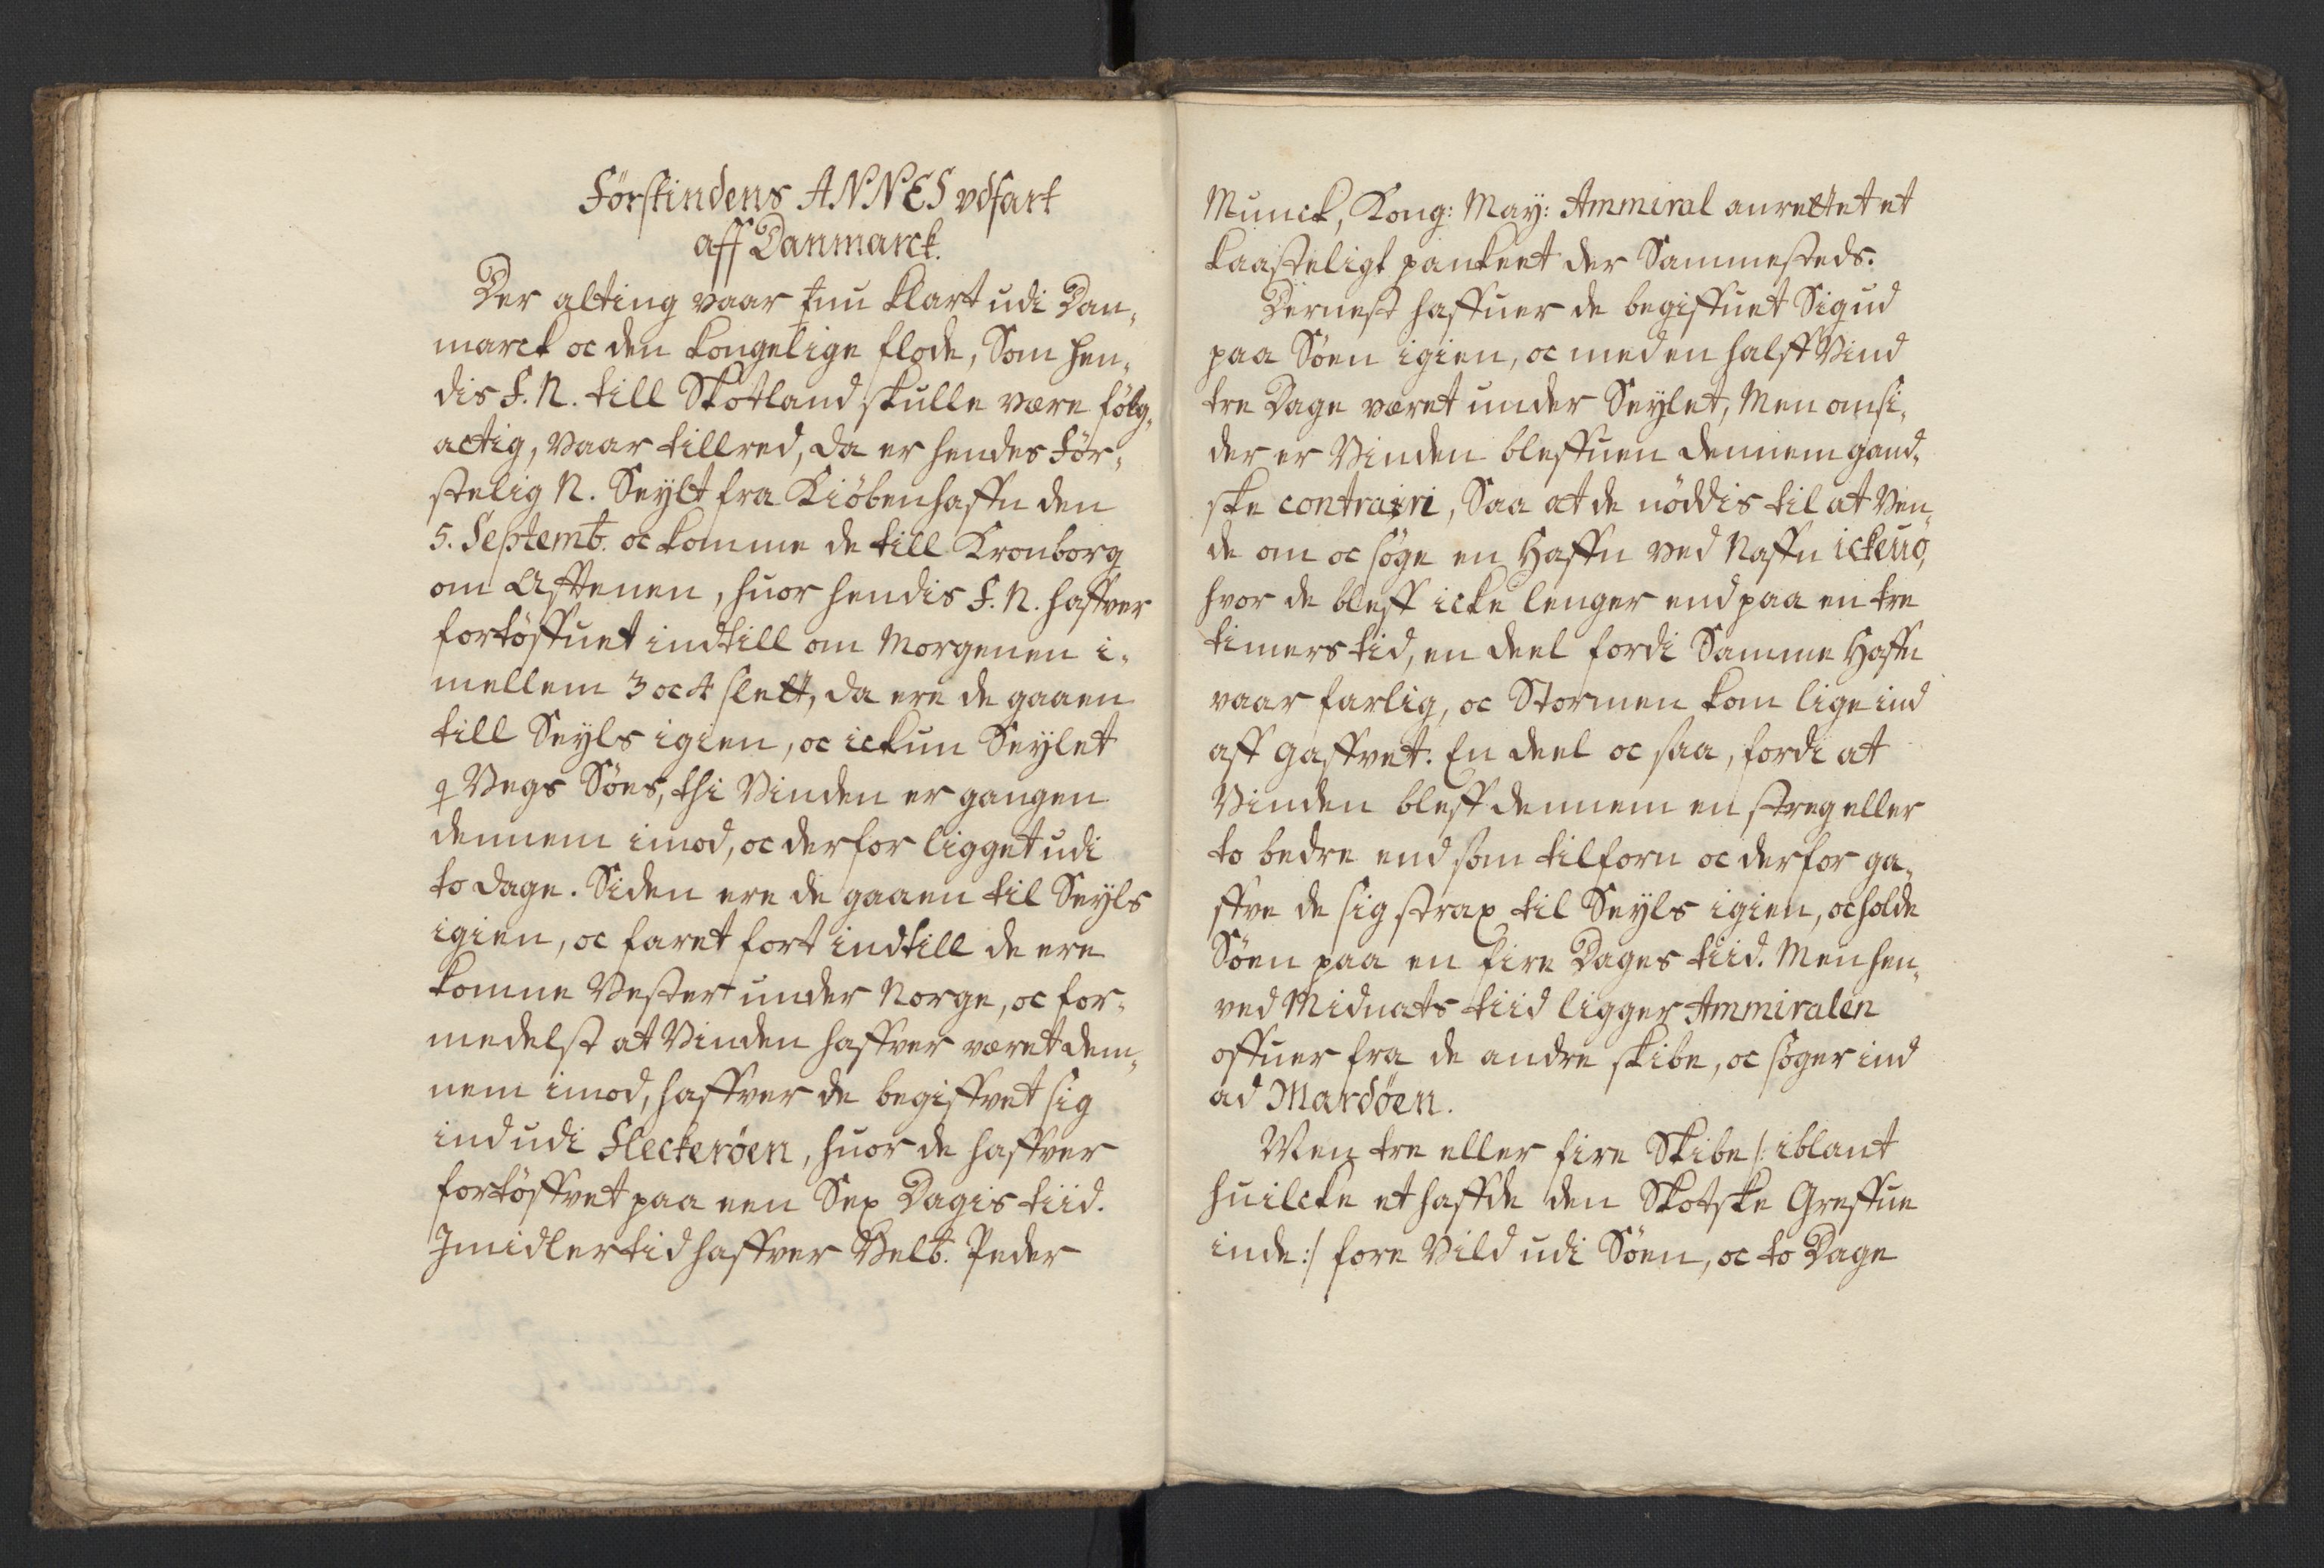 Förstindens ANNES vdfart
aff Danmarck.
Der alting vaar nu klart udi Dan„
marck oc den kongelige flode, Som hen„
dis F. N. till Skotland skulle være följ„
actig, vaar tillred, da er hendes För„
stelig N. Seylt fra Kiöbenhaffn den
5. Septemb. oc komme de till Kronborg
om Afftenen, huor hendis F. N. haffver
fortöffuet indtill om Morgenen i„
mellem 3 oc 4 slett, da ere de gaaen
till Seyls igien, oc ickun Seylet
Vegs Söes, thi Vinden er gangen
dennem imod, oc derfor ligget udi
to dage. Siden ere de gaaen til Seyls
igien, oc faret fort indtill de ere
komne Vester under Norge, oc for„
medelst at Vinden haffver været den„
nem imod, haffver de begiffvet sig
ind udi Fleckeröen, huor de haffver
fortöffvet paa een Sex Dagis tiid.
Imidlertid haffver Velb. Peder
Munck, Kong: May: Ammiral anrettet et
kaasteligt panket der Sammesteds.
Dernest haffuer de begiffuet Sig ud
paa Söen igien, oc med en halff Vind
tre Dage været under Seylet, Men omsi„
der er Vinden bleffuen dennem gand„
ske contrairi, Saa at de nöddis til at Ven„
de om oc söge en Haffn ved Naffn ickeuo,
hvor de bleff icke lenger end paa en tre
timers tid, en deel fordi Samme Haffn
vaar farlig, oc Stormen kom lige ind
aff Haffvet. En deel oc saa, fordi at
Vinden bleff dennem en streg eller
to bedre end som tilforn oc derfor ga„
ffve de sig strax til Seyls igien, oc holde
Söen paa en fire Dages tiid. Men hen„
ved Midnats tiid ligger Ammiralen
offuer fra de andre skibe, oc söger ind
ad Mardöen.
Men tre eller fire Skibe /: iblant
huilcke et haffde den Skotske Greffue
inde :/ fore Vild udi Söen, oc to Dage